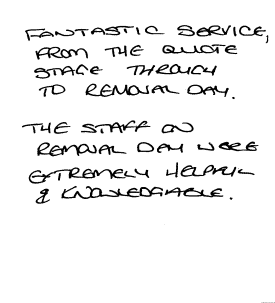 FANTASTIC SERVICE,
FROM THE QUOTE
STAGE THROUGH
TO REMOVAL DAY.
THE STAFF ON
REMOVAL DAY WERE
EXTREMELY HELPFUL
& KNOWLEDGABLE.